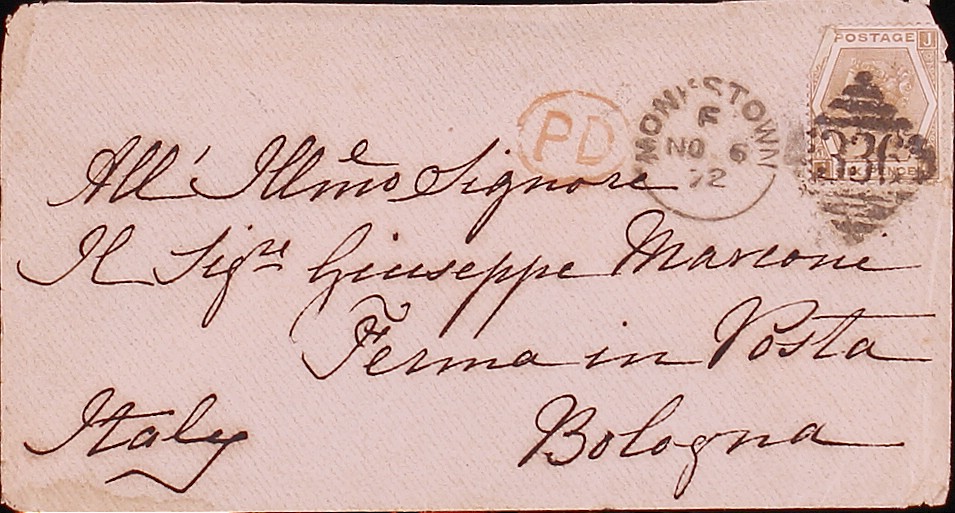 POSTAGE J
PD
MONKSTOWN
F
NO 6
72
336
SIX PENCE
All' Illmo e Signore
Il Sigre Giuseppe Marcone
Ferma in Posta
Bologna
Italy